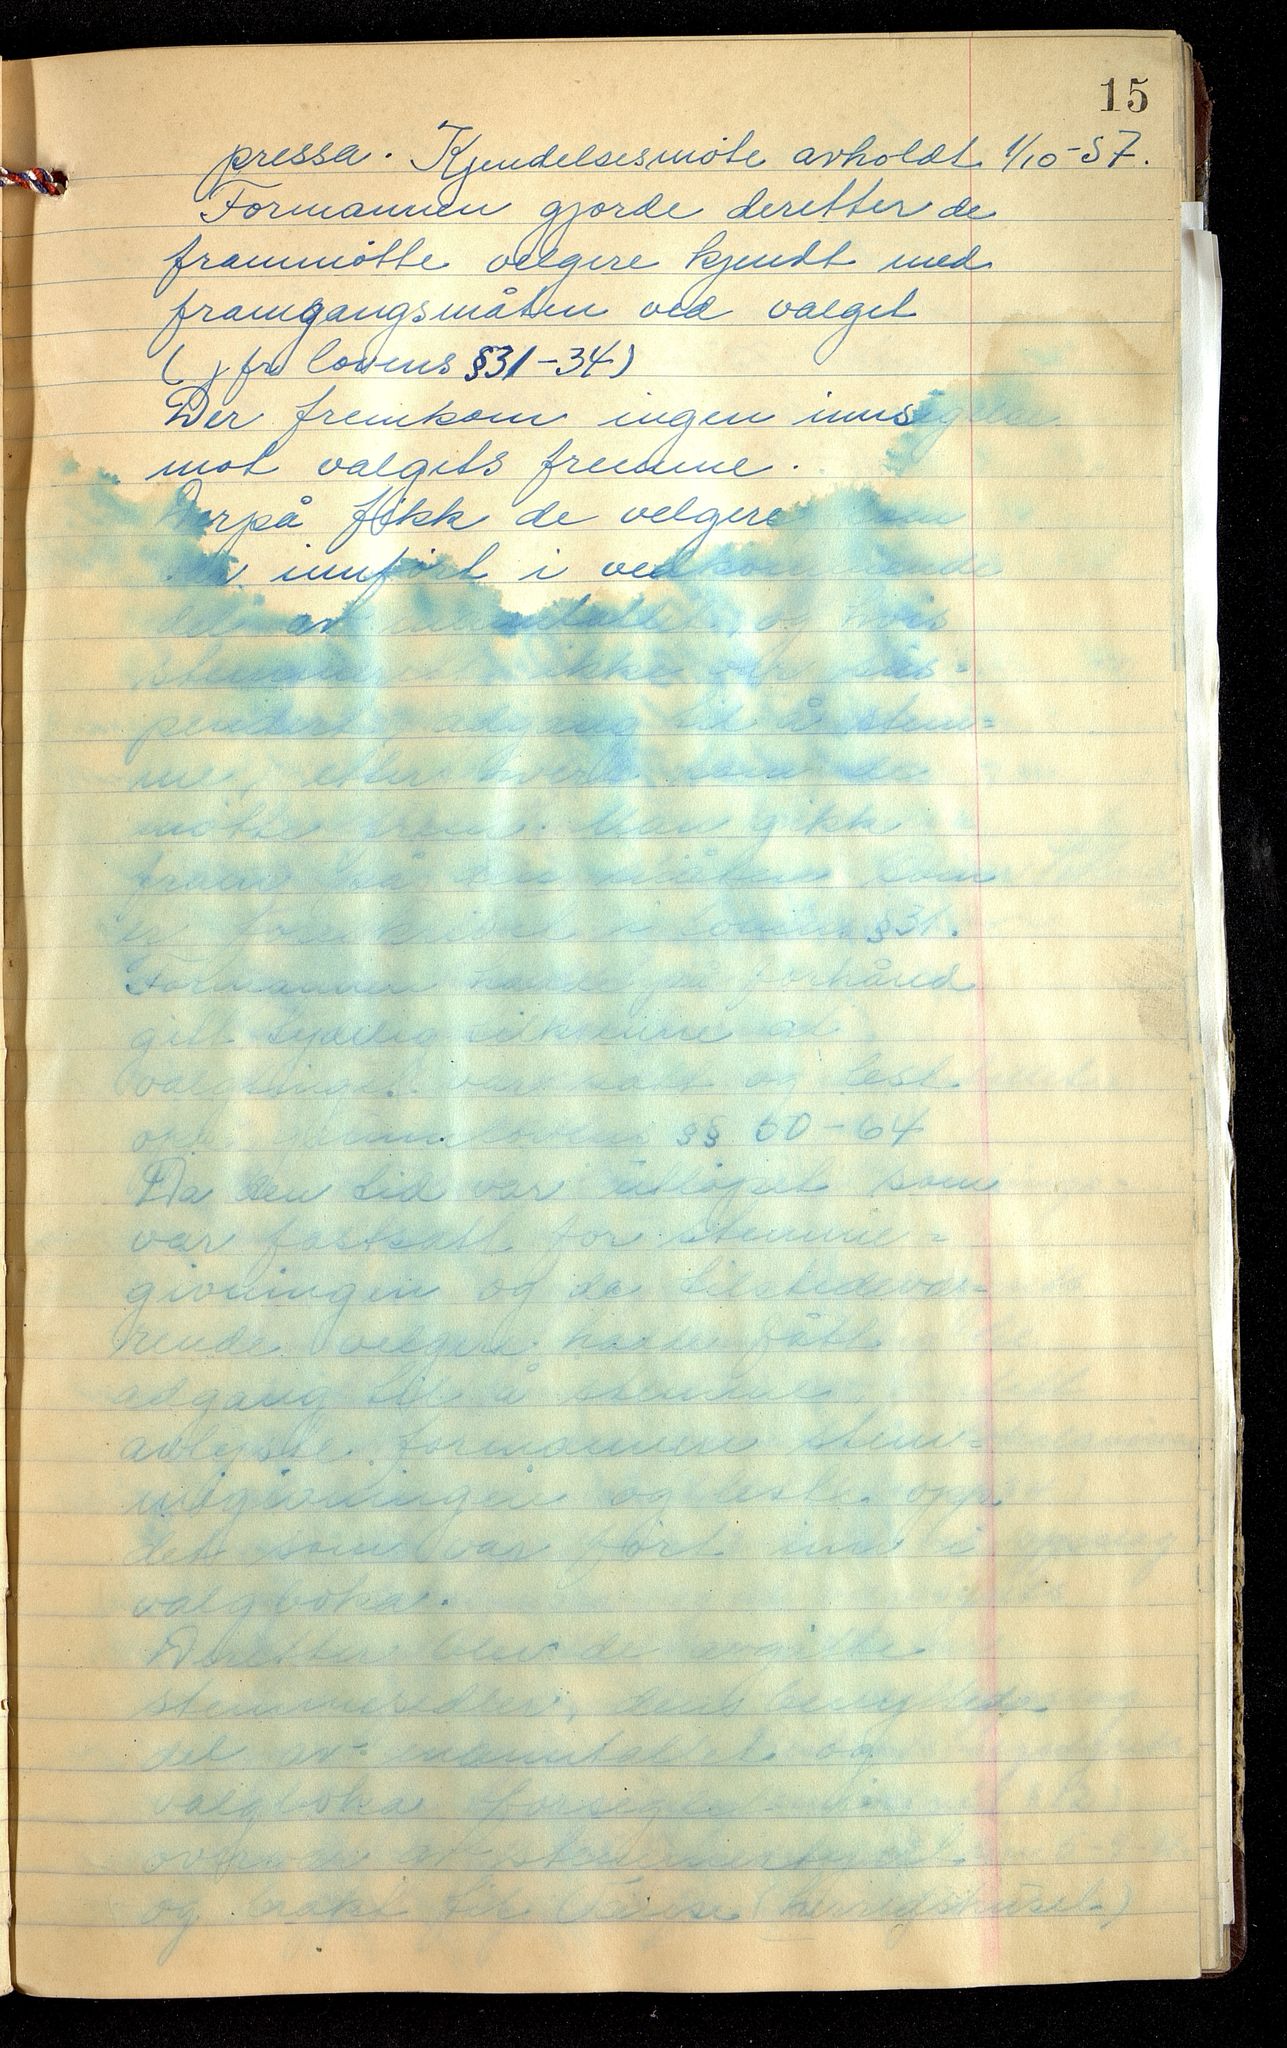 15
pressa. Kjendelsesmöte avholdt 1/10-57.
Formannen gjorde deretter de
frammötte velgere kjendt med
framgangsmåten ved valget
(jfr lovens §31-34)
Der fremkom ingen innsigelse
mot valgets fremme.
Derpå fikk de velgere som
innfört i vedkommende
del av manntallet, og hvis
stemmerett ikke var sus=
pendert, adgang til å stem=
me, etter hvert som de
mötte frem. Man gikk
fram på den måten som
er foreskrevet i lovens §31.
Formannen hadde på forhånd
gitt tydelig tilkjenne at
valgtinget var satt og lest
opp grunnlovens §§ 50-64
Da den tid var utlöpet som
var fastsatt for stemme=
givningen og de tilstedevæ=
rende velgere hadde fått
adgang til å stemme,
avlyste formannen stem=
megivningen og leste opp
det som var fört inn i
valgboka.
Deretter blev de avgitte
stemmesedler, den benyttede
del av manntallet og
valgboka forseglet
overvær av stemmestyret
og brakt til (herredshuset.)